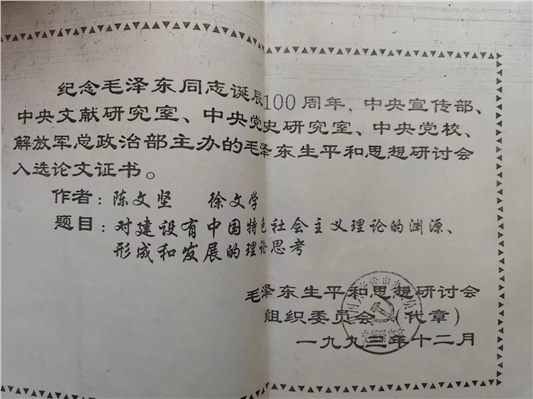 纪念毛泽东同志诞辰100周年，中央宣传部、
中央文献研究室、中央党史研究室、中央党校、
解放军总政治部主办的毛泽东生平和思想研讨会
入选论文证书。
作者：陈文坚 徐文学
题目：对建设有中国特色社会主义理论的渊源、
形成和发展的理论思考
毛泽东生平和思想研讨会
组织委员会（代章）
一九九三年十二月